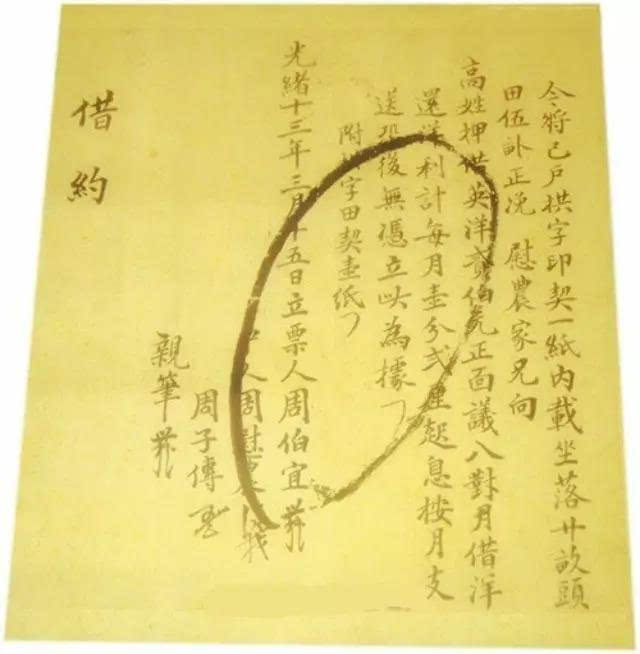 今將己戶拱字印契一紙內載坐落廿畝頭
田伍計正浼 慰農家兄向
高姓押借英洋貳伯元正面議八對月借洋
還洋利計每月壹分貳厘起息按月支
送恐後無憑立此為據
附拱字田契壹紙
光緒十三年三月十五日立票人周伯宜
中人周慰農
周子傳
親筆
借約